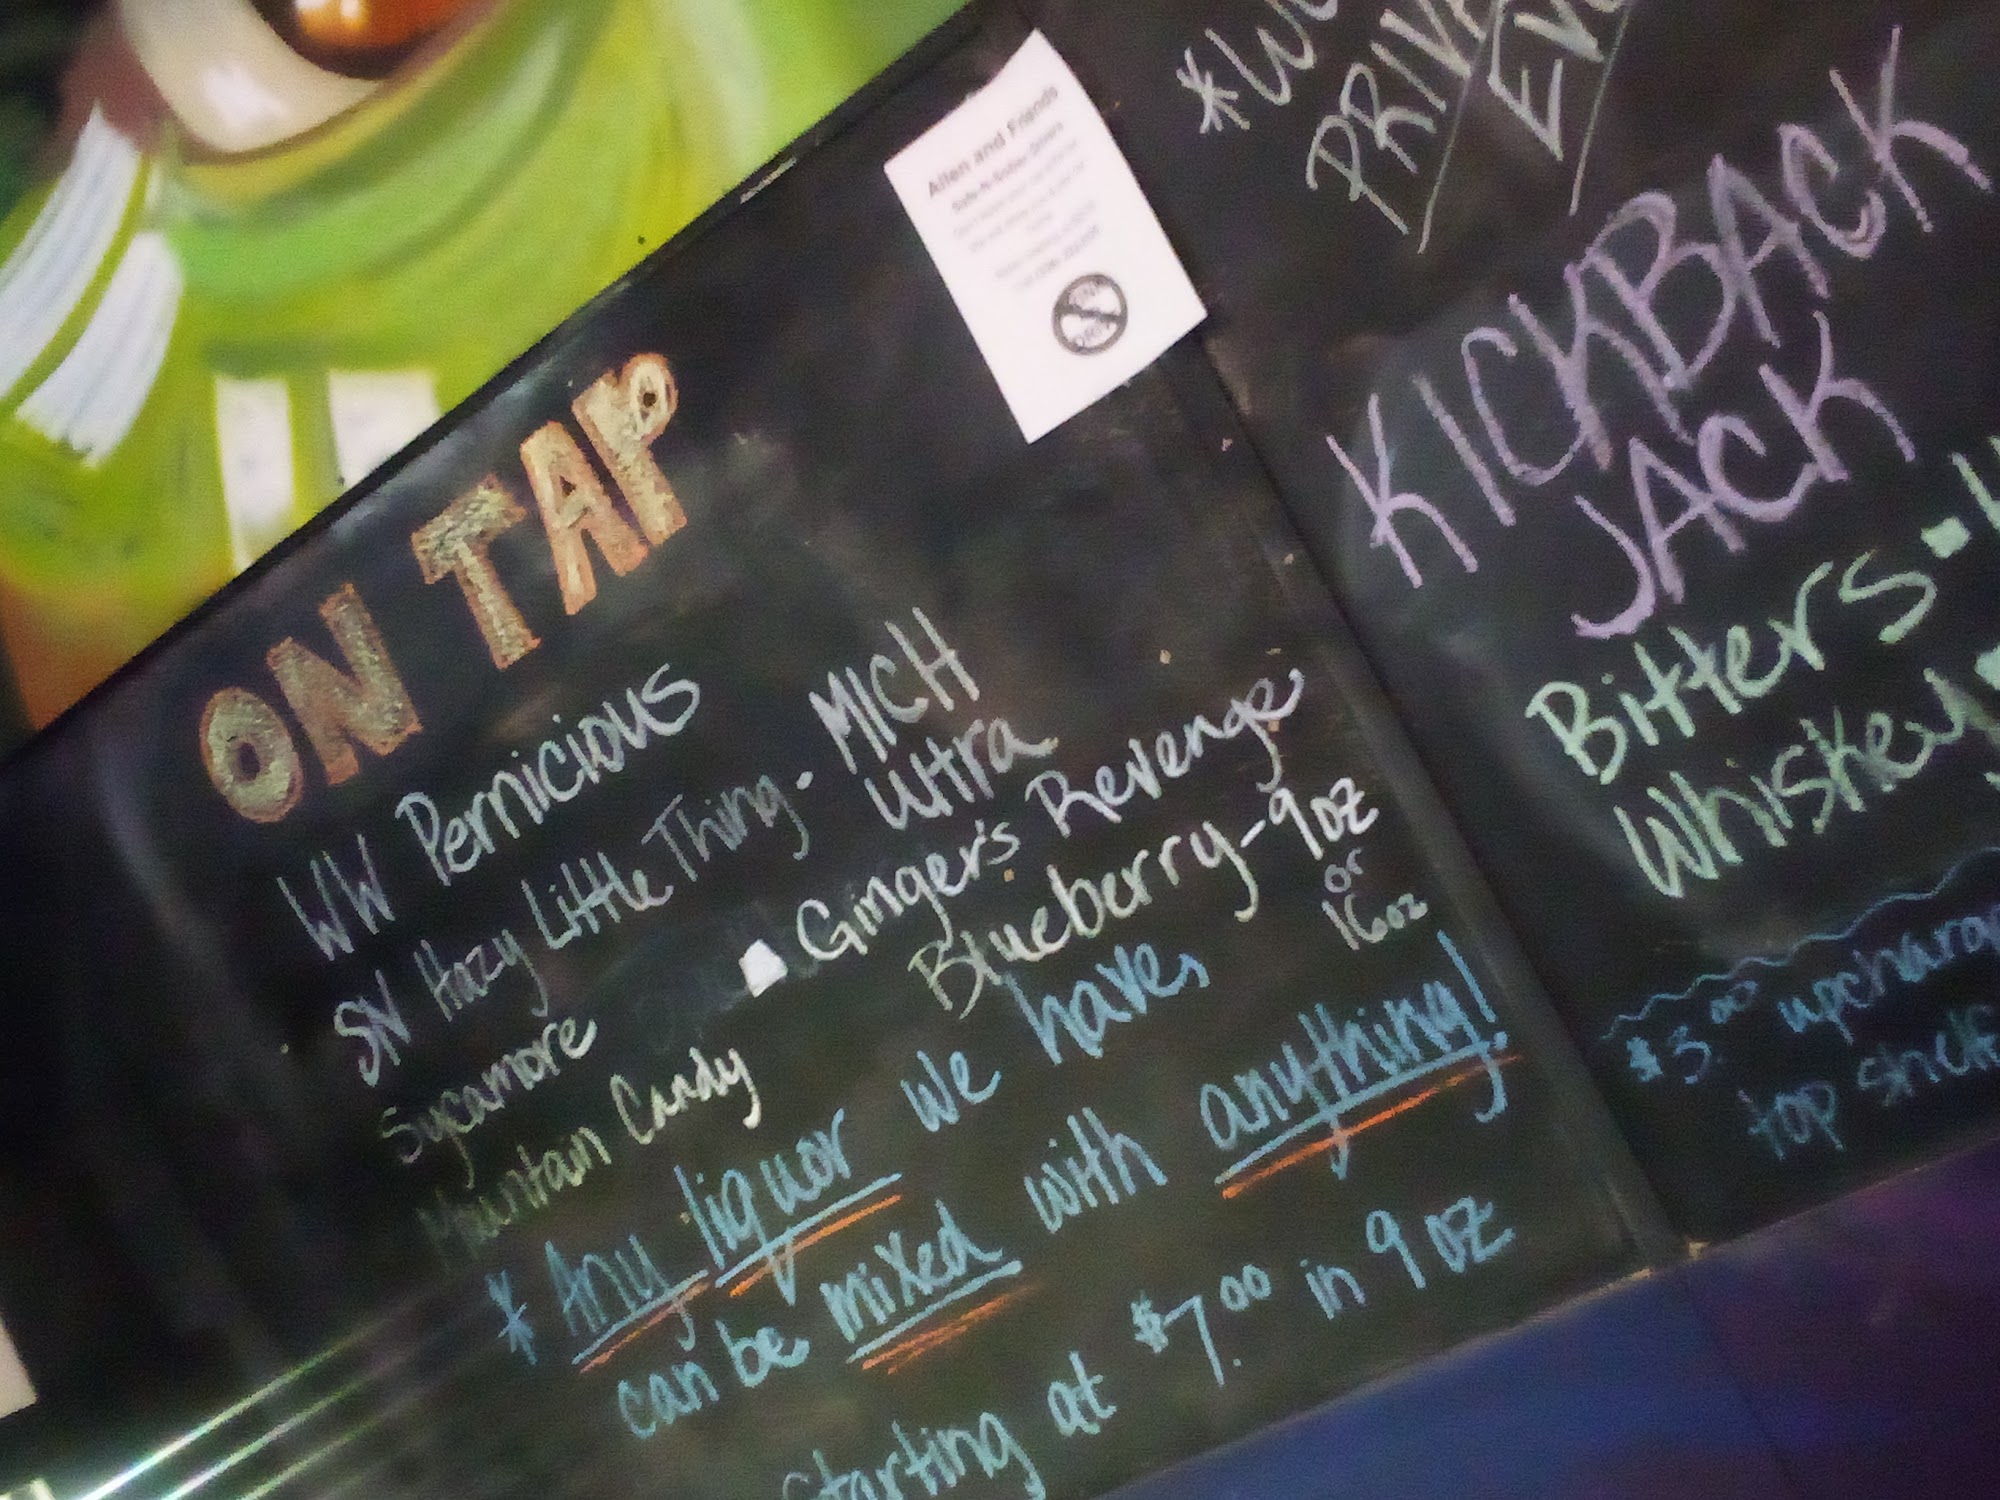 ON TAP
WW Pernicious
SN Hazy Little Thing.
Sycamore
Mountain Candy
MICH
Ultra
Ginger's Revenge
Blueberry-9oz
or
16oz
* Any liquor we have,
can be mixed with anything!
Starting at $7.00 in 9oz
Allen and Friends
KICKBACK
JACK
Bitters
Whiskey
$3.00
top shelf